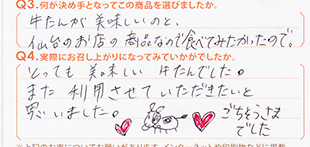 Q3.何が決め手となってこの商品を選びましたか。
牛たんが美味しいのと、
仙台のお店の商品なので食べてみたかったので。
Q4.実際にお召し上がりになってみていかがでしたか。
とっても美味しい牛たんでした。
また利用させていただきたいと
思いました。
ごちそうさま
でした